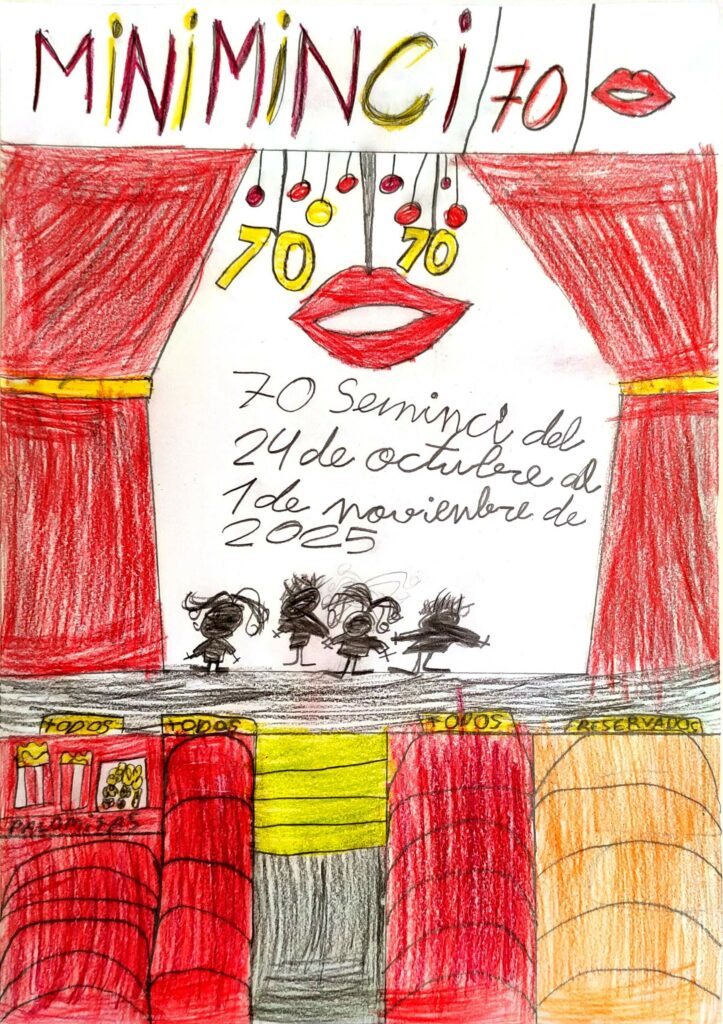 MiNiMiNCi 70
70 70
70 Seminci del
24 de octubre al
1 de noviembre de
2025
TODOS TODOS TODOS RESERVADOS
PALOMiTAS